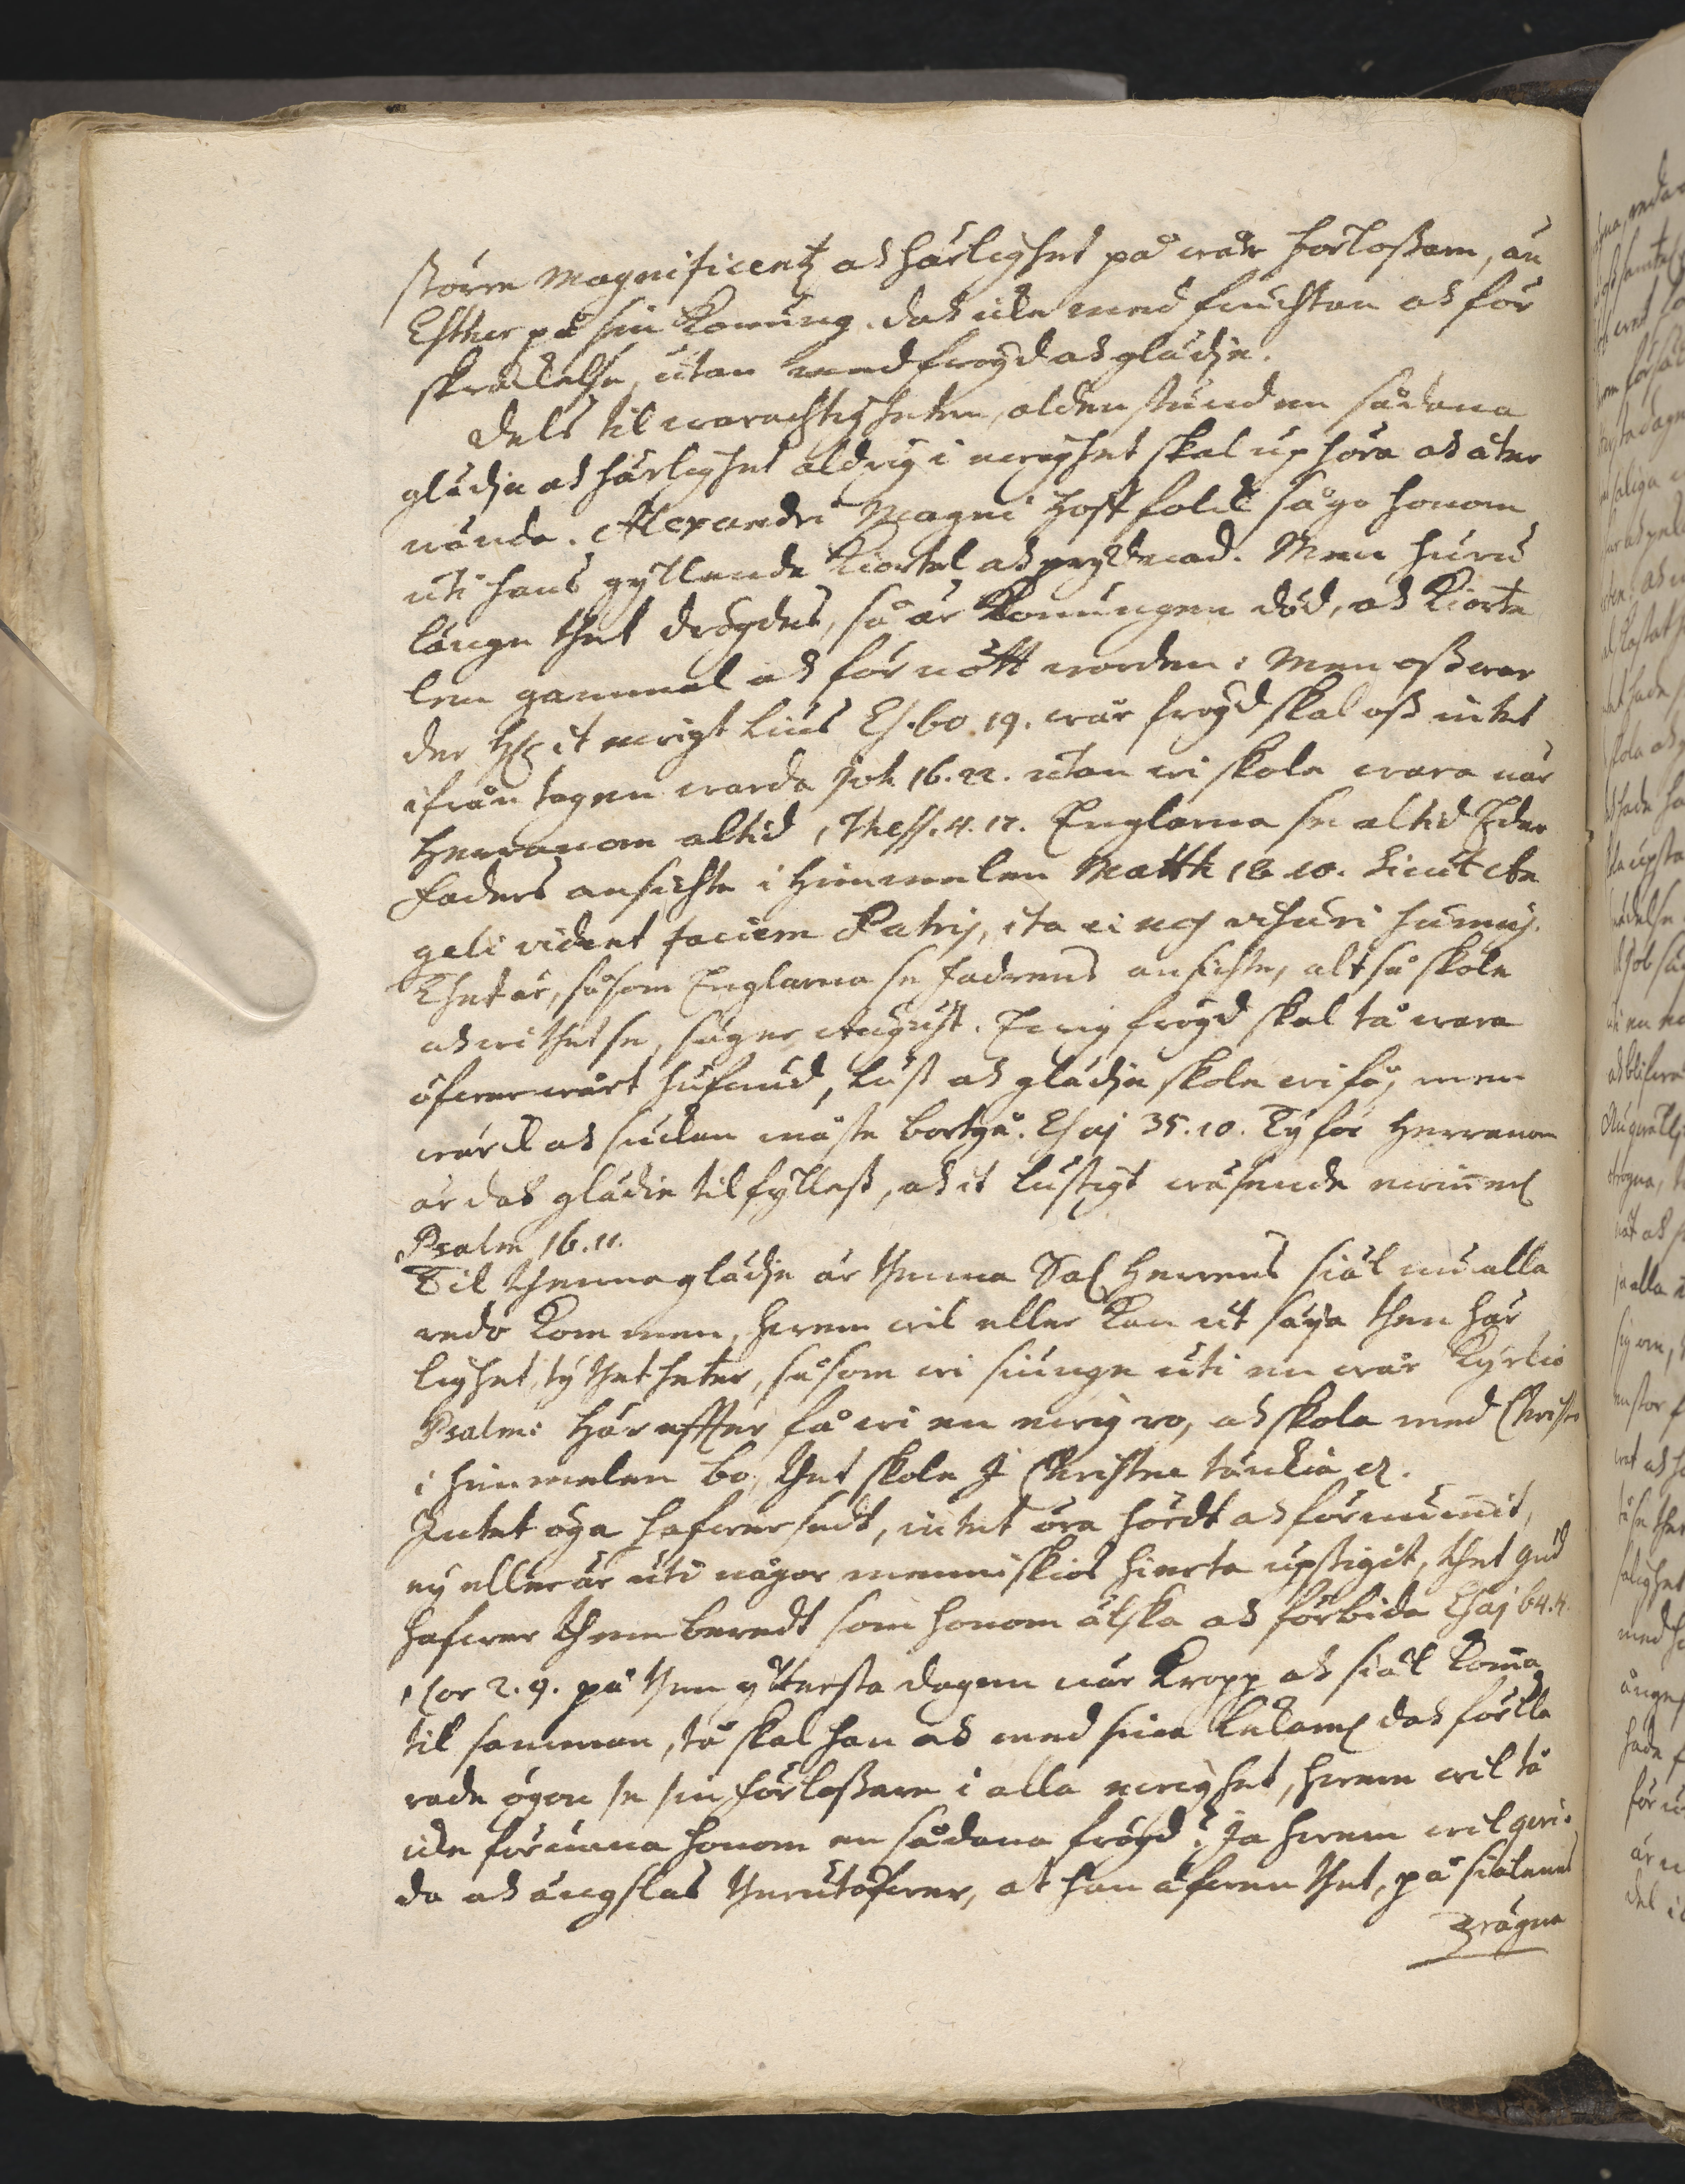 större Magnificentz och härlighet på wår förloßare, än
Esther på sin Konung. doch icke med fruchtan och för
skräckelse, utan med frögd och glädje.
Dels til warachtigheten, aldenstund en sådana
glädje och härlighet aldrig i ewighet skal uphöra och åter
wända. Alexandri Magni Hoff folck sågo honom
uti hans gyllende Kiortel och prydnad. Men huru
länge thet drögdes, så är Konungen död, och Kiorte
len gammal och för nött worden: Men oß war
der H: it ewigt Lius Es. 60. 19. wår frögd skal oß intet
ifrån tagen warda Joh 16. 22. utan wi skole wara när
Herranom altid 1 Thess. 4. 17. Englarna se altid Eder
Faders ansichte i Himmelen Matth 18. 10. Sicut An
geli vident faciem Patris, ita et nos visuri sumus.
Thet är, såsom Englarna se Fadrens ansichte, altså skole
och wi thet se, säger August. Ewig frögd skal tå wara
öfwer wårt hufwud, Lust och glädje skole wi få, men
wärck och sucken måste bortgå. Esaj 35. 10. Ty för Herranom
är doch glädie tilfylleß, och it lustigt wäsende ewinnerl
Psalm 16. 11.
Til thenna glädje är thenna Sal Herrens siäl nu alla
redo kommen, hwem wil eller kan ut säija then här
lighet, ty thet heter, såsom wi siunge uti en wår Kyrkio
Psalm: Här effter få wi en ewig ro, och skole med Christo
i himmelen bo, thet skole I Christne tänckia etc.
Intet öga hafwer sedt, intet öra hördt och förnummit,
ey eller är uti någor menniskios hierta upstigit, thet Gud
hafwer them beredt som honom älska och förbida Esaj 64. 4.
1 Cor 2. 9. på then ytterste dagen när Kropp och siäl komma
til samman, tå skal han och med sina Lekaml doch förkla
rade ögon se sin förloßare i alla ewighet, hwem wil tå
icke förunna honom en sådana frögd? Ja hwem wil qwi-
da och ängslas therutöfwer, at han äfwen thet, på siälenes
wägna